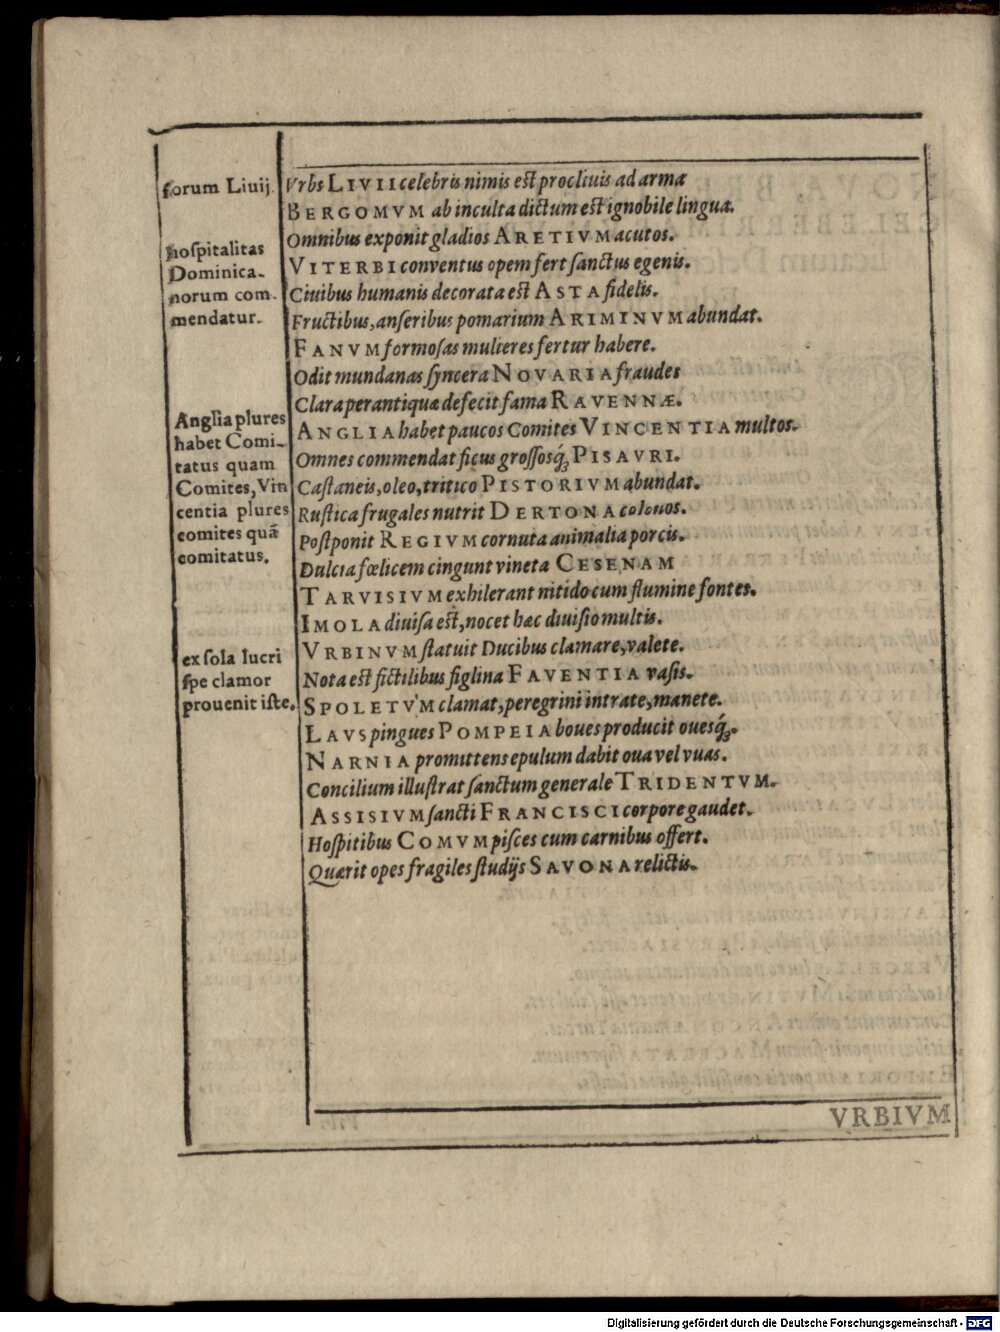 forum Liuij.
hoſpitalitas
Dominica-
norum com-
mendatur.
Anglia plures
habet Comi-
tatus quam
Comites, Vin
centia plures
comites quā
comitatus.
ex ſola lucri
ſpe clamor
prouenit iſte.
Vrbs LIVII celebris nimis eſt procliuis ad arma
BERGOMVM ab inculta dictum eſt ignobile lingua.
Omnibus exponit gladios ARETIVM acutos.
VITERBI conventus opem fert ſanctus egenis.
Ciuibus humanis decorata eſt ASTA fidelis.
Fructibus, anſeribus pomarium ARIMINVM abundat.
FANVM formoſas mulieres fertur habere.
Odit mundanas ſyncera NOVARIA fraudes
Clara perantiquæ defecit fama RAVENNÆ.
ANGLIA habet paucos Comites VINCENTIA multos.
Omnes commendat ficus groſſosq́ꝫ PISAVRI.
Caſtaneis, oleo, tritico PISTORIVM abundat.
Ruſtica frugales nutrit DERTONA colonos.
Poſtponit REGIVM cornuta animalia porcis.
Dulcia fœlicem cingunt vineta CESENAM
TARVISIVM exhilerant nitido cum flumine fontes.
IMOLA diuiſa eſt, nocet hæc diuiſio multis.
VRBINVM ſtatuit Ducibus clamare, valete.
Nota eſt fictilibus figlina FAVENTIA vaſis.
SPOLETVM clamat, peregrini intrate, manete.
LAVS pingues POMPEIA boues producit ouesq́ꝫ.
NARNIA promittens epulum dabit oua vel vuas.
Concilium illuſtrat ſanctum generale TRIDENTVM.
ASSISIVM ſancti FRANCISCI corpore gaudet.
Hoſpitibus COMVM piſces cum carnibus offert.
Quærit opes fragiles ſtudijs SAVONA relictis.
VRBIVM
Digitalisierung gefördert durch die Deutsche Forschungsgemeinschaft - DFG